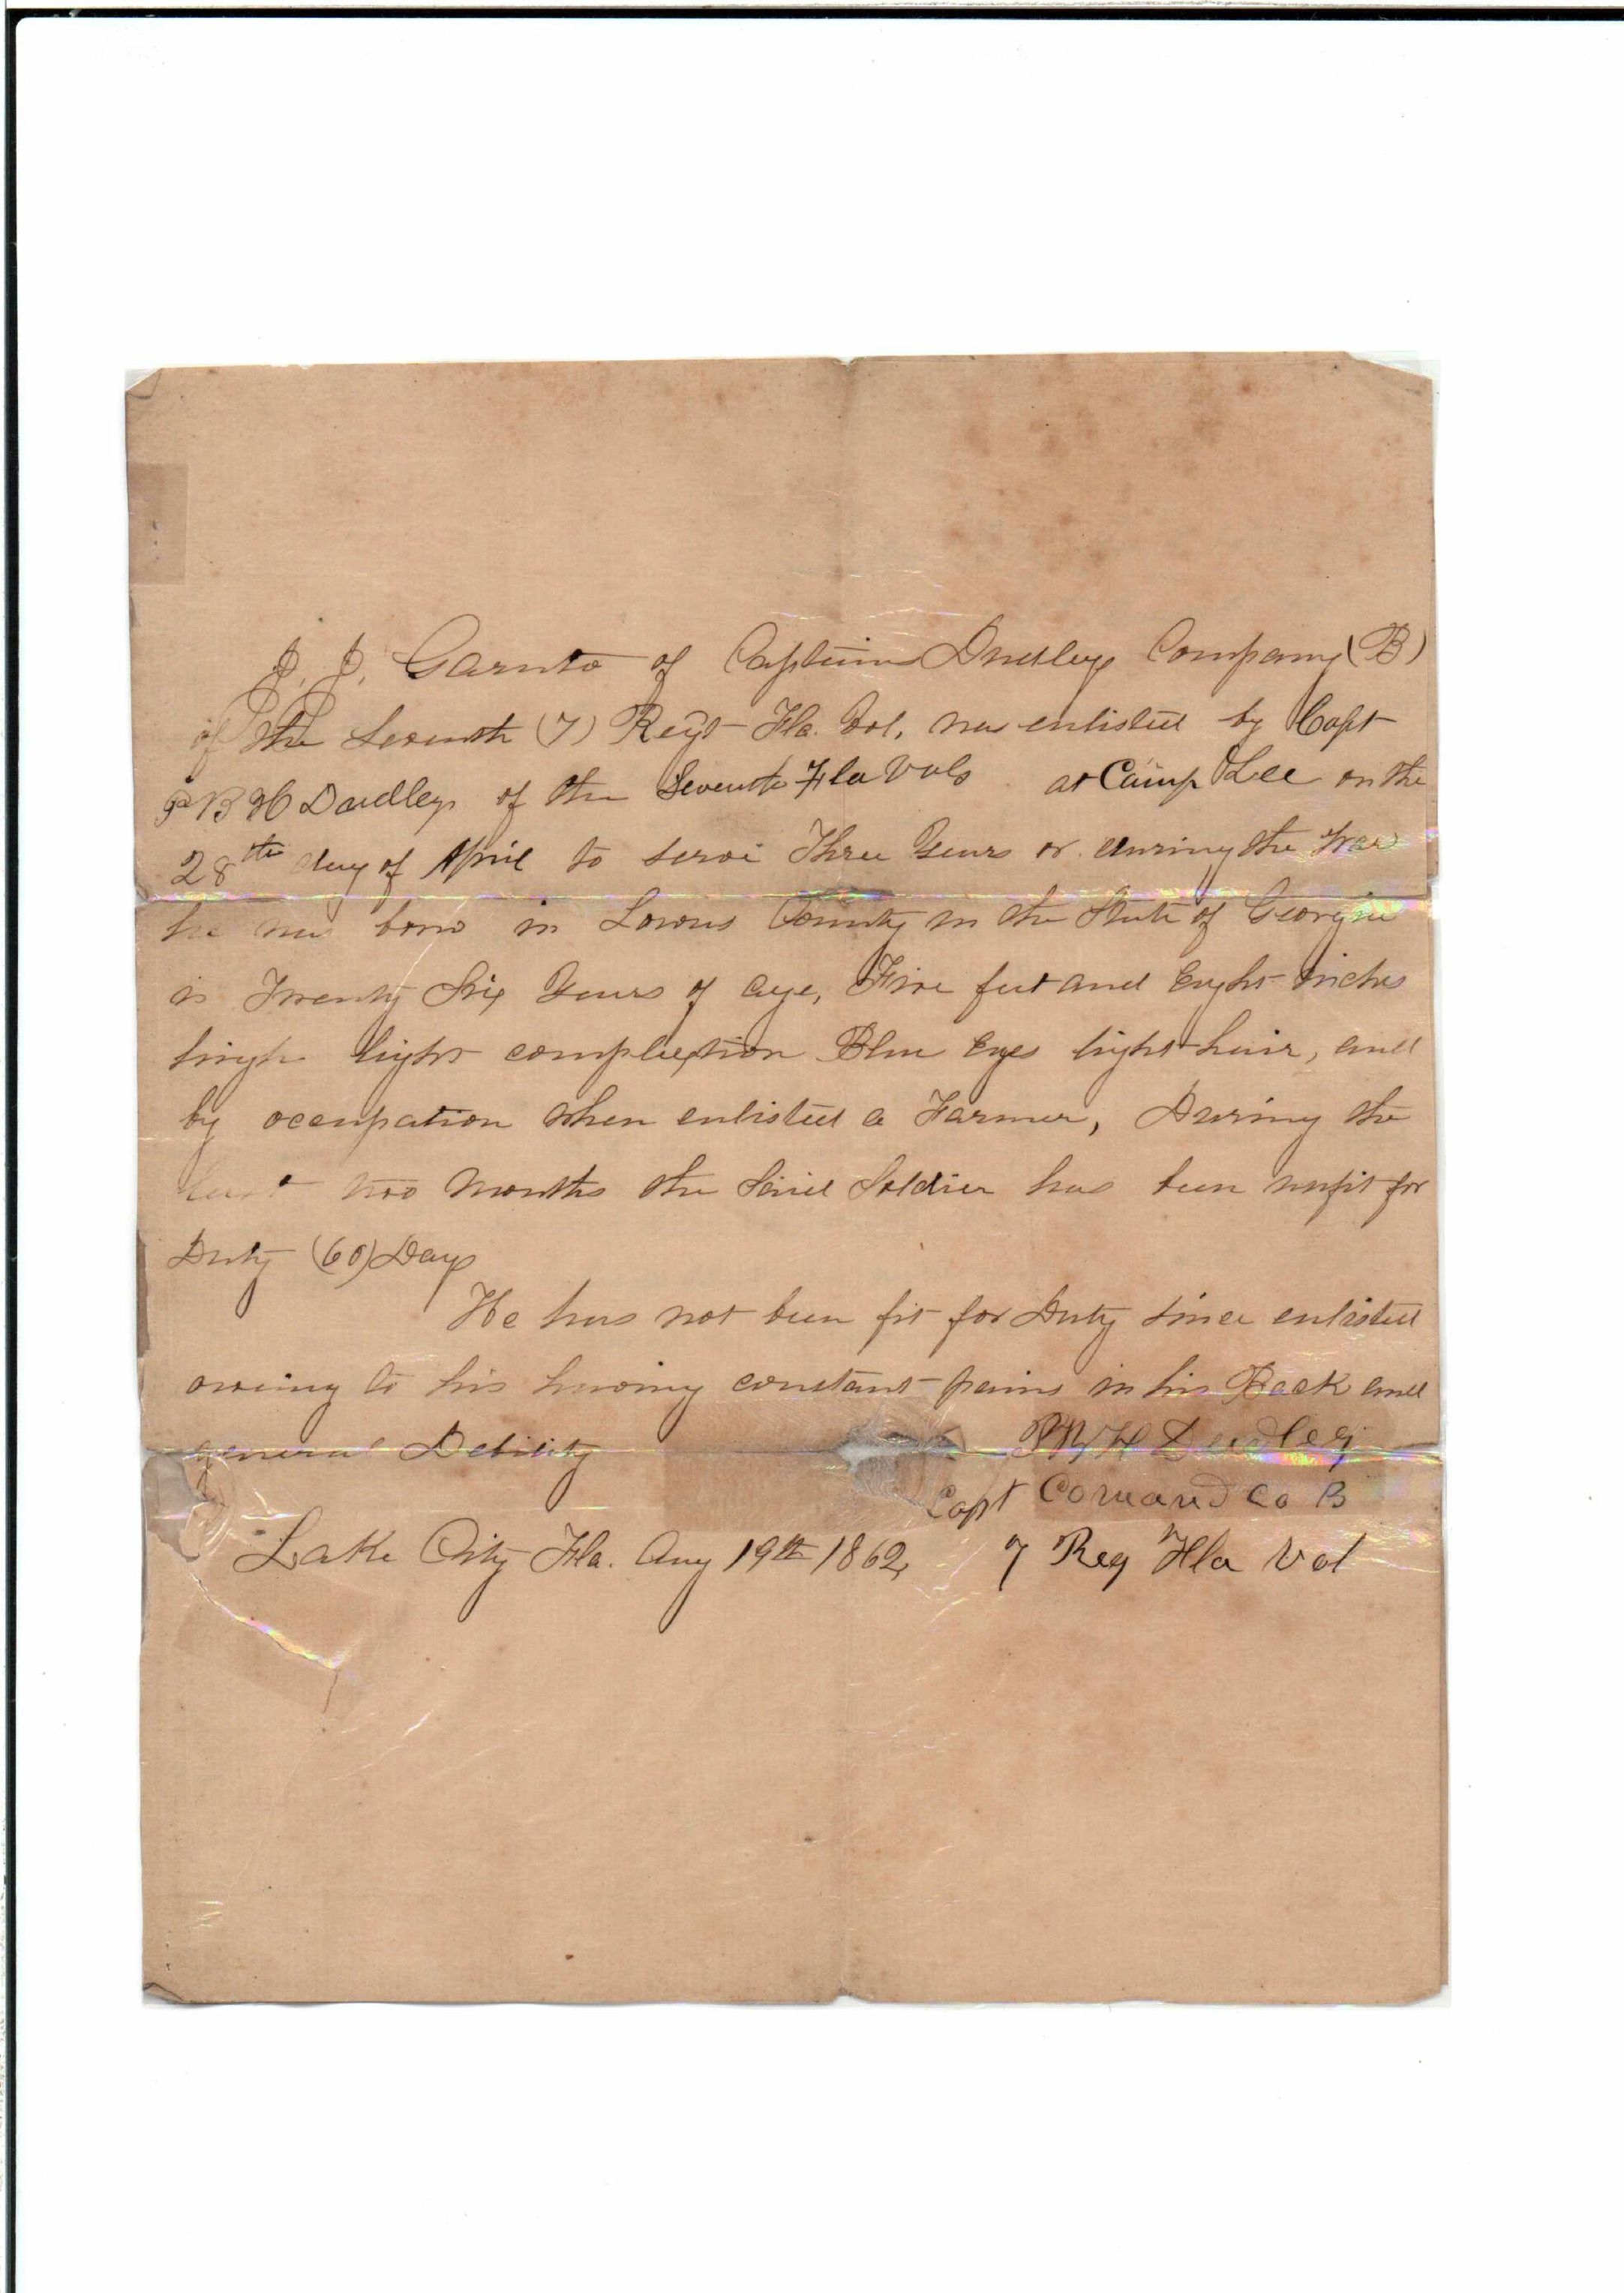 J. J. Garnto of Captain Dudleys Company (B)
of the Seventh (7) Regt Fla. Vol. was enlisted by Capt
B H Dudley of the Seventh Fla Vols at Camp Lee on the
28th day of April to serve Three Years or during the War
he was born in Lowns County in the State of Georgia
is Twenty Six Years of age, Five feet and Eight inches
high light complextion Blue Eyes light hair, and
by occupation when enlisted a Farmer, During the
last two months the Said Soldier has been unfit for
Duty (60) Days
He has not been fit for Duty since enlisted
owing to his having constant pains in his Back and
general Debility
H Dudley
Capt Comand Co B
Lake City Fla. Aug 19th 1862, 7 Reg Fla Vol